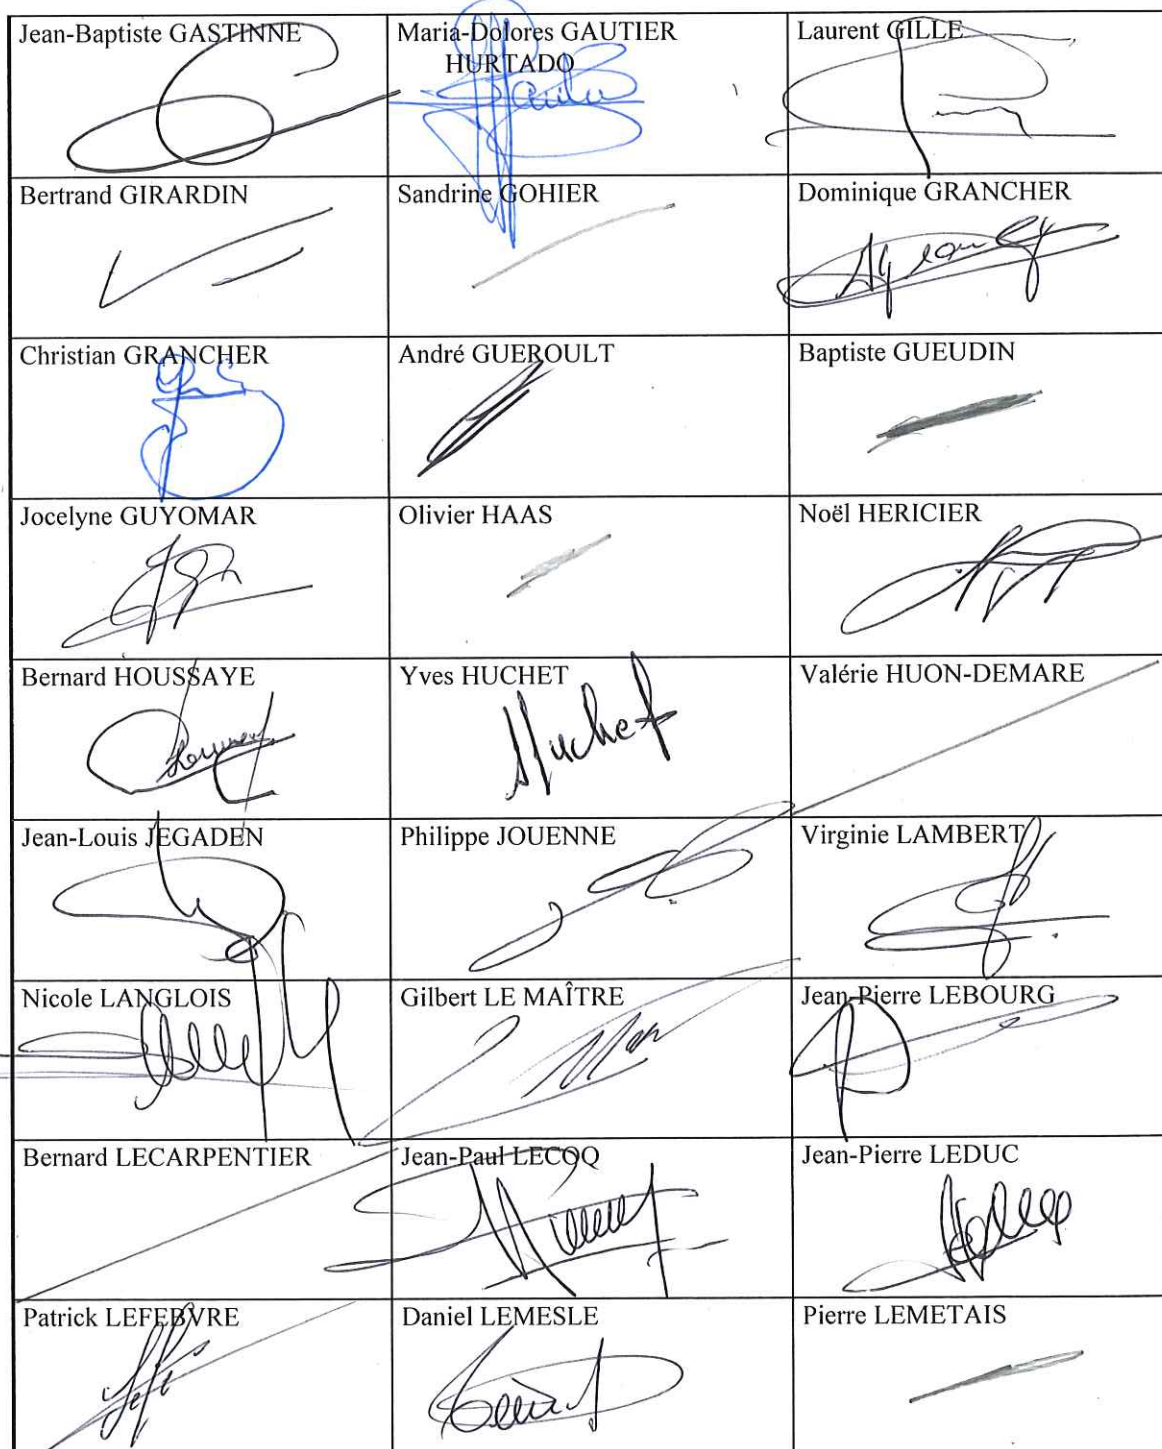 Jean-Baptiste GASTINNE
Maria-Dolores GAUTIER
HURTADO
Laurent GILLE
Bertrand GIRARDIN
Sandrine GOHIER
Dominique GRANCHER
Christian GRANCHER
André GUEROULT
Baptiste GUEUDIN
Jocelyne GUYOMAR
Olivier HAAS
Noël HERICIER
Bernard HOUSSAYE
Yves HUCHET
Huchet
Valérie HUON-DEMARE
Jean-Louis JEGADEN
Philippe JOUENNE
Virginie LAMBERT
Nicole LANGLOIS
Gilbert LE MAÎTRE
Jean-Pierre LEBOURG
Bernard LECARPENTIER
Jean-Paul LECOQ
Jean-Pierre LEDUC
Patrick LEFEBVRE
Daniel LEMESLE
Pierre LEMETAIS